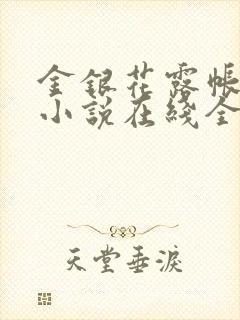 金银花露帐
小说在线全
天堂垂泪